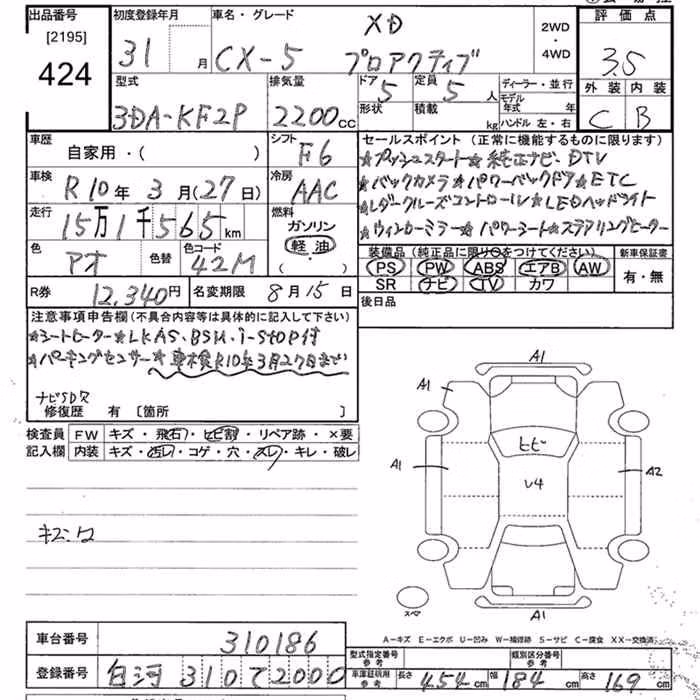 出品番号 初度登録年月 車名・グレード XD 2WD・4WD 評価点
[2195] 31 月 CX-5 プロアクティブ 3.5
424
型式 排気量 ドア 5 定員 5 人 ディーラー・並行 外装 内装
3DA-KF2P 2200 cc 形状 積載 kg モデル年式 年 ハンドル 左・右 C B
車歴 自家用・( ) シフト F6 セールスポイント (正常に機能するものに限ります)
★プッシュスタート★純正ナビ・DTV
車検 R10年 3月(27日) 冷房 AAC ★バックカメラ★パワーバックドア★ETC
走行 15万1千565 km 燃料 ガソリン 軽油 ( ) ★レダークルーズコントロール★LEDヘッドライト
★ウィンカーミラー★パワーシート★ステアリングヒーター
色 アオ 色替 色コード 42M 装備品 (純正品に限り○をつけてください) 新車保証書
PS PW ABS エアB AW 有・無
SR ナビ TV カワ
R券 12,340円 名変期限 8月15日 後日品
注意事項申告欄(不具合内容等は具体的に記入して下さい)
★シートヒーター★LKAS、BSM、i-STOP付
★パーキングセンサー★車検R10年3月27日まで
ナビSD欠
修復歴 有 [箇所 ]
検査員記入欄 FW キズ・飛石・ヒビ割・リペア跡・×要
内装 キズ・汚レ・コゲ・穴・スレ・キレ・破レ
A1
A1
ヒビ
A1 A2
U4
スペア
A1
A-キズ E-エクボ U-凹み W-補修跡 S-サビ C-腐食 XX-交換済
車台番号 310186
型式指定番号 参考 類別区分番号 参考
登録番号 白河 310 て 2000 車庫証明用 参考 長さ 454 cm 幅 184 cm 高さ 169 cm